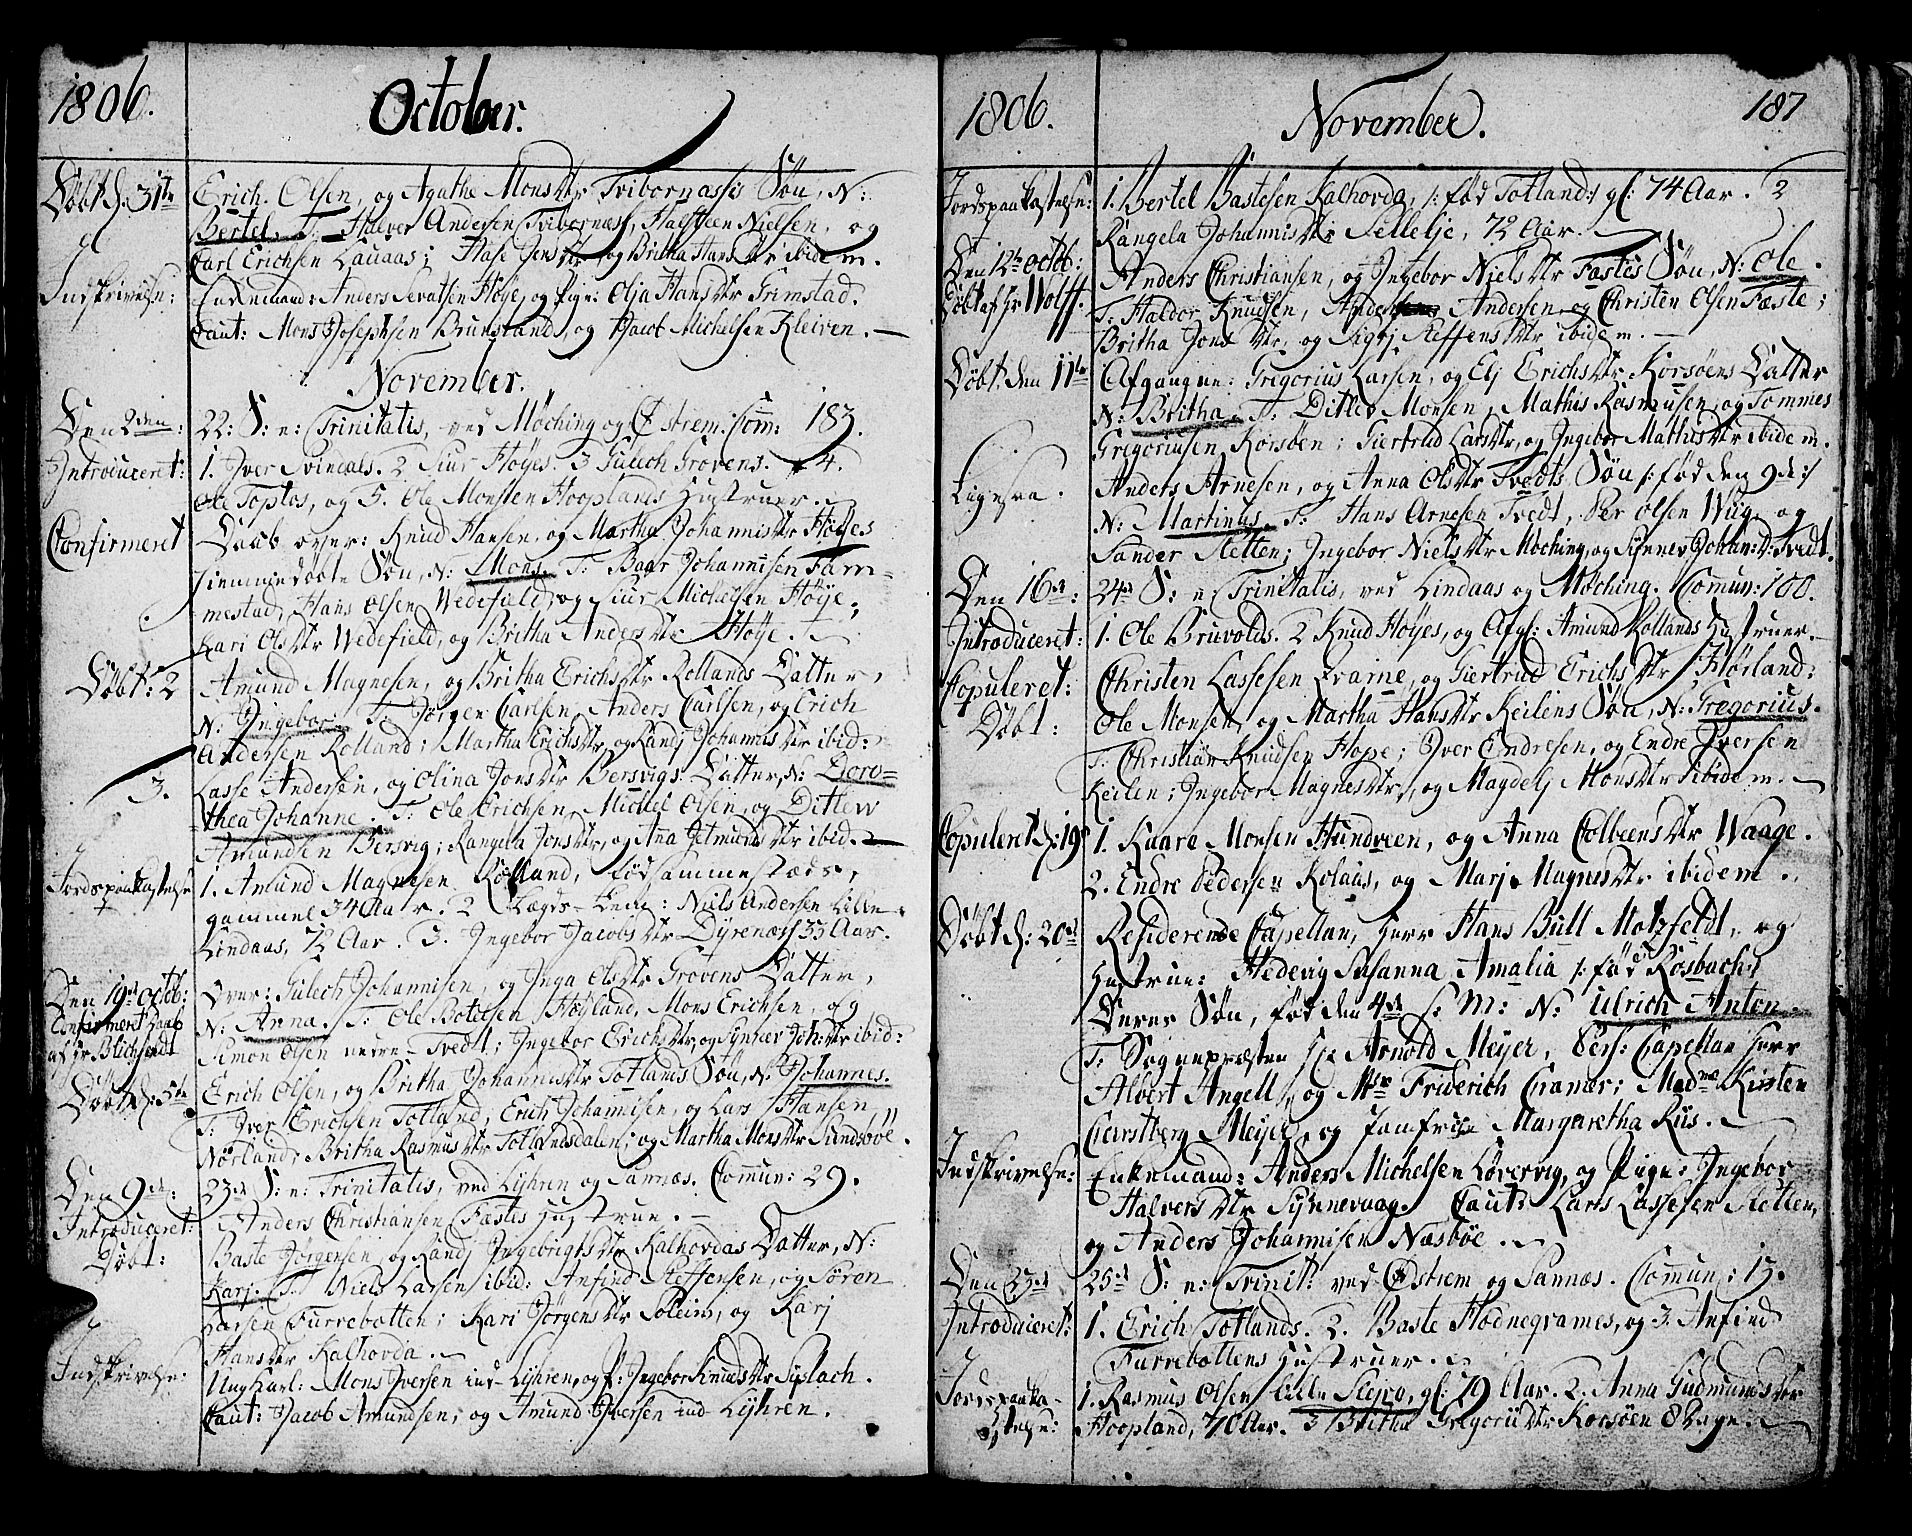 1806. October.
Döbt d: 31te Erich Olsen, og Agathe Monsdtr Tvibornæssis Sön, N:
Bertel. T: Halver Andersen Tvibornæss, Halsteen Nielsen, og
Carl Erichsen Lauaas; Hase Jensdtr og Britha Hansdtr ibidem.
Indskrivelse: Enkemand: Anders Sevatsen Höye, og Pige: Olja Hansdtr Grimstad.
Caut: Mons Josephsen Brunstand, og Jacob Michelsen Kleiven. —
November.
Den 2den: 22: S: n: Trinitatis, ved Möching og Östrem: Com: 183.
Introduceret: 1. Iver Svindals. 2 Siur Höyes. 3 Gulech Grovens. 4.
Ole Toptos, og 5. Ole Monsten Hooplands Hustruer.
Confirmeret Daab over: Knud Hansen, og Martha Johannisdtr Höyes
Hiemmedöbte Sön, N: Mons. T: Baar Johannisen Fam=
mestad, Hans Olsen Wedefield, og Siur Michelsen Höye;
Kari Olsdtr Wedefield, og Britha Andersdtr Höye.
Döbt: 2 Amund Magnesen, og Britha Erichsdtr Rollands Datter,
N: Ingebor. T: Jörgen Carlsen, Anders Carlsen, og Erich
Andersen Rolland; Martha Erichsdtr, og Randj Johannisdtr ibid:
3. Lasse Andersen, og Olina Jonsdtr Bersvigs Datter, N: Doro=
thea Johanne. T: Ole Erichsen, Michel Olsen, og Ditlew
Amundsen Bersvig; Rangela Jonsdtr, og Ana Jetmundsdtr ibid. —
Jordspaakastelse 1. Amund Magnesen Rolland, föd sammestæds,
gammel 34 Aar. 2 Lægds-Lem: Niels Andersen Lille
Lindaas, 72 Aar. 3. Ingebor Jacobsdtr Dyrenæss 33 Aar.
Den 19de Octob: Over: Gulech Johannisen, og Inga Olsdtr Grovens Datter,
Confirmeret Daab N: Arna. T: Ole Botelsen Höyland, Mons Erichsen, og
af Hr Blichfeldt Simon Olsen nedre-Tvedt; Ingebor Erichsdtr, og Synnev Joh:dtr ibid:
Döbt d: 5te Erich Olsen, og Britha Johannisdtr Totlands Sön, N: Johannes.
T: Iver Erichsen Totland, Erich Johannisen, og Lars Hansen
Nörland; Britha Rasmusdtr Totlandsdalen; og Martha Monsdtr Sundsböe.
Den 9de: 23de S: n: Trinitatis, ved Lyhren og Sannæs. Comun: 29.
Introduceret: Anders Christiansen Fæstes Hustrue. —
Döbt: Baste Jörgensen, og Randj Ingebrigtsdtr Kalhovdas Datter, N:
Karj. T: Niels Larsen ibid: Anfind Steffensen, og Sören
Larsen Furrebotten; Kari Jörgensdtr Solein, og Karj
Hansdtr Kalhovda.
Indskrivelse: Ung Karl: Mons Iversen ind-Lyhren, og P: Ingebor Knudsdtr Syslach.
Caut: Jacob Amundsen, og Amund Iversen ind-Lyhren.
1806. November. 187
Jordspaakastelse: 1. Bertel Bastesen Kalhovda, /: föd Totland:/ gl: 74 Aar. 2
Rangela Johannisdtr Sellelje, 72 Aar.
Den 12te Octob: Anders Christiansen, og Ingebor Nielsdtr Fæstes Sön, N: Ole.
Döbt af Hr Wolff. T: Haldor Knudsen, Anders Andersen og Christen Olsen Fæste;
Britha Jonsdtr, og Sigrj Steffensdtr ibidem. —
Döbt den 11te Afgangne: Gregorius Larsen, og Elj Erichsdtr Korsöens Datter
N: Britha. T: Ditlev Monsen, Mathis Rasmusen, og Tommes
Gregoriusen Korsöen; Giertrud Larsdtr, og Ingebor Mathisdtr ibidem.
Ligesaa. Anders Arnesen, og Anna Olsdtr Tvedts Sön /: föd den 9de:/
N: Martinus. T: Hans Arnesen Tvedt, Per Olsen Wiig, og
Sander Sletten; Ingebor Nielsdtr Möching, og Synnev Johan:Dr Tvedt.
Den 16de: 24de S: n: Trinitatis, ved Lindaas og Möching. Comun: 100.
Introduceret: 1. Ole Bruvolds. 2 Knud Höyes, og Afg: Amund Rollands Hustruer. —
Copuleret: Christen Lassesen Qvarne, og Giertrud Erichsdtr Hörland:
Döbt: Ole Monsen, og Martha Hansdtr Keilens Sön, N: Gregorius.
T: Christian Knudsen Hope; Iver Endresen, og Endre Iversen
Keilen; Ingebor Magnesdtr, og Magdelj Monsdtr ibidem.
Copuleret d: 19de 1. Kaare Monsen Hundveen, og Anna Colbeensdtr Waage.
2. Endre Pedersen Kolaas, og Marj Magnesdtr ibidem.
Döbt d: 20de Residerende Capellan, Herr Hans Bull Motzfeldt, og
Hustrue: Hedevig Susanna Amalia /: föd Rosbach:/
Deres Sön, föd den 4de s: M: N: Ulrich Anton.
T: Sognepræsten Hr Arnold Meyer, Pers: Capellan Herr
Albert Angell, og Msr Friderich Cramer; Madme Kirsten
Garstberg Meyer, og Jomfrue Margaretha Riis.
Indskrivelse: Enkemand: Anders Michelsen Lövervig, og Pige: Ingebor
Halversdtr Synnevaag. Caut: Lars Lassesen Sletten,
og Anders Johannisen Næsböe.
Den 23de 25de S: n: Trinit: ved Östrem og Sannæs. Comun: 13.
Introduceret: 1. Erich Totlands. 2. Baste Hodnegrames, og 3. Anfind
Furrebottens Hustruer.
Jordspaaka- 1. Rasmus Olsen Lille Slejro, gl: 79 Aar. 2. Anna Gudmundsdtr
stelse: Hoopland, 70 Aar. 3 Britha Gregoriidtr Korsöen 8 Dage.